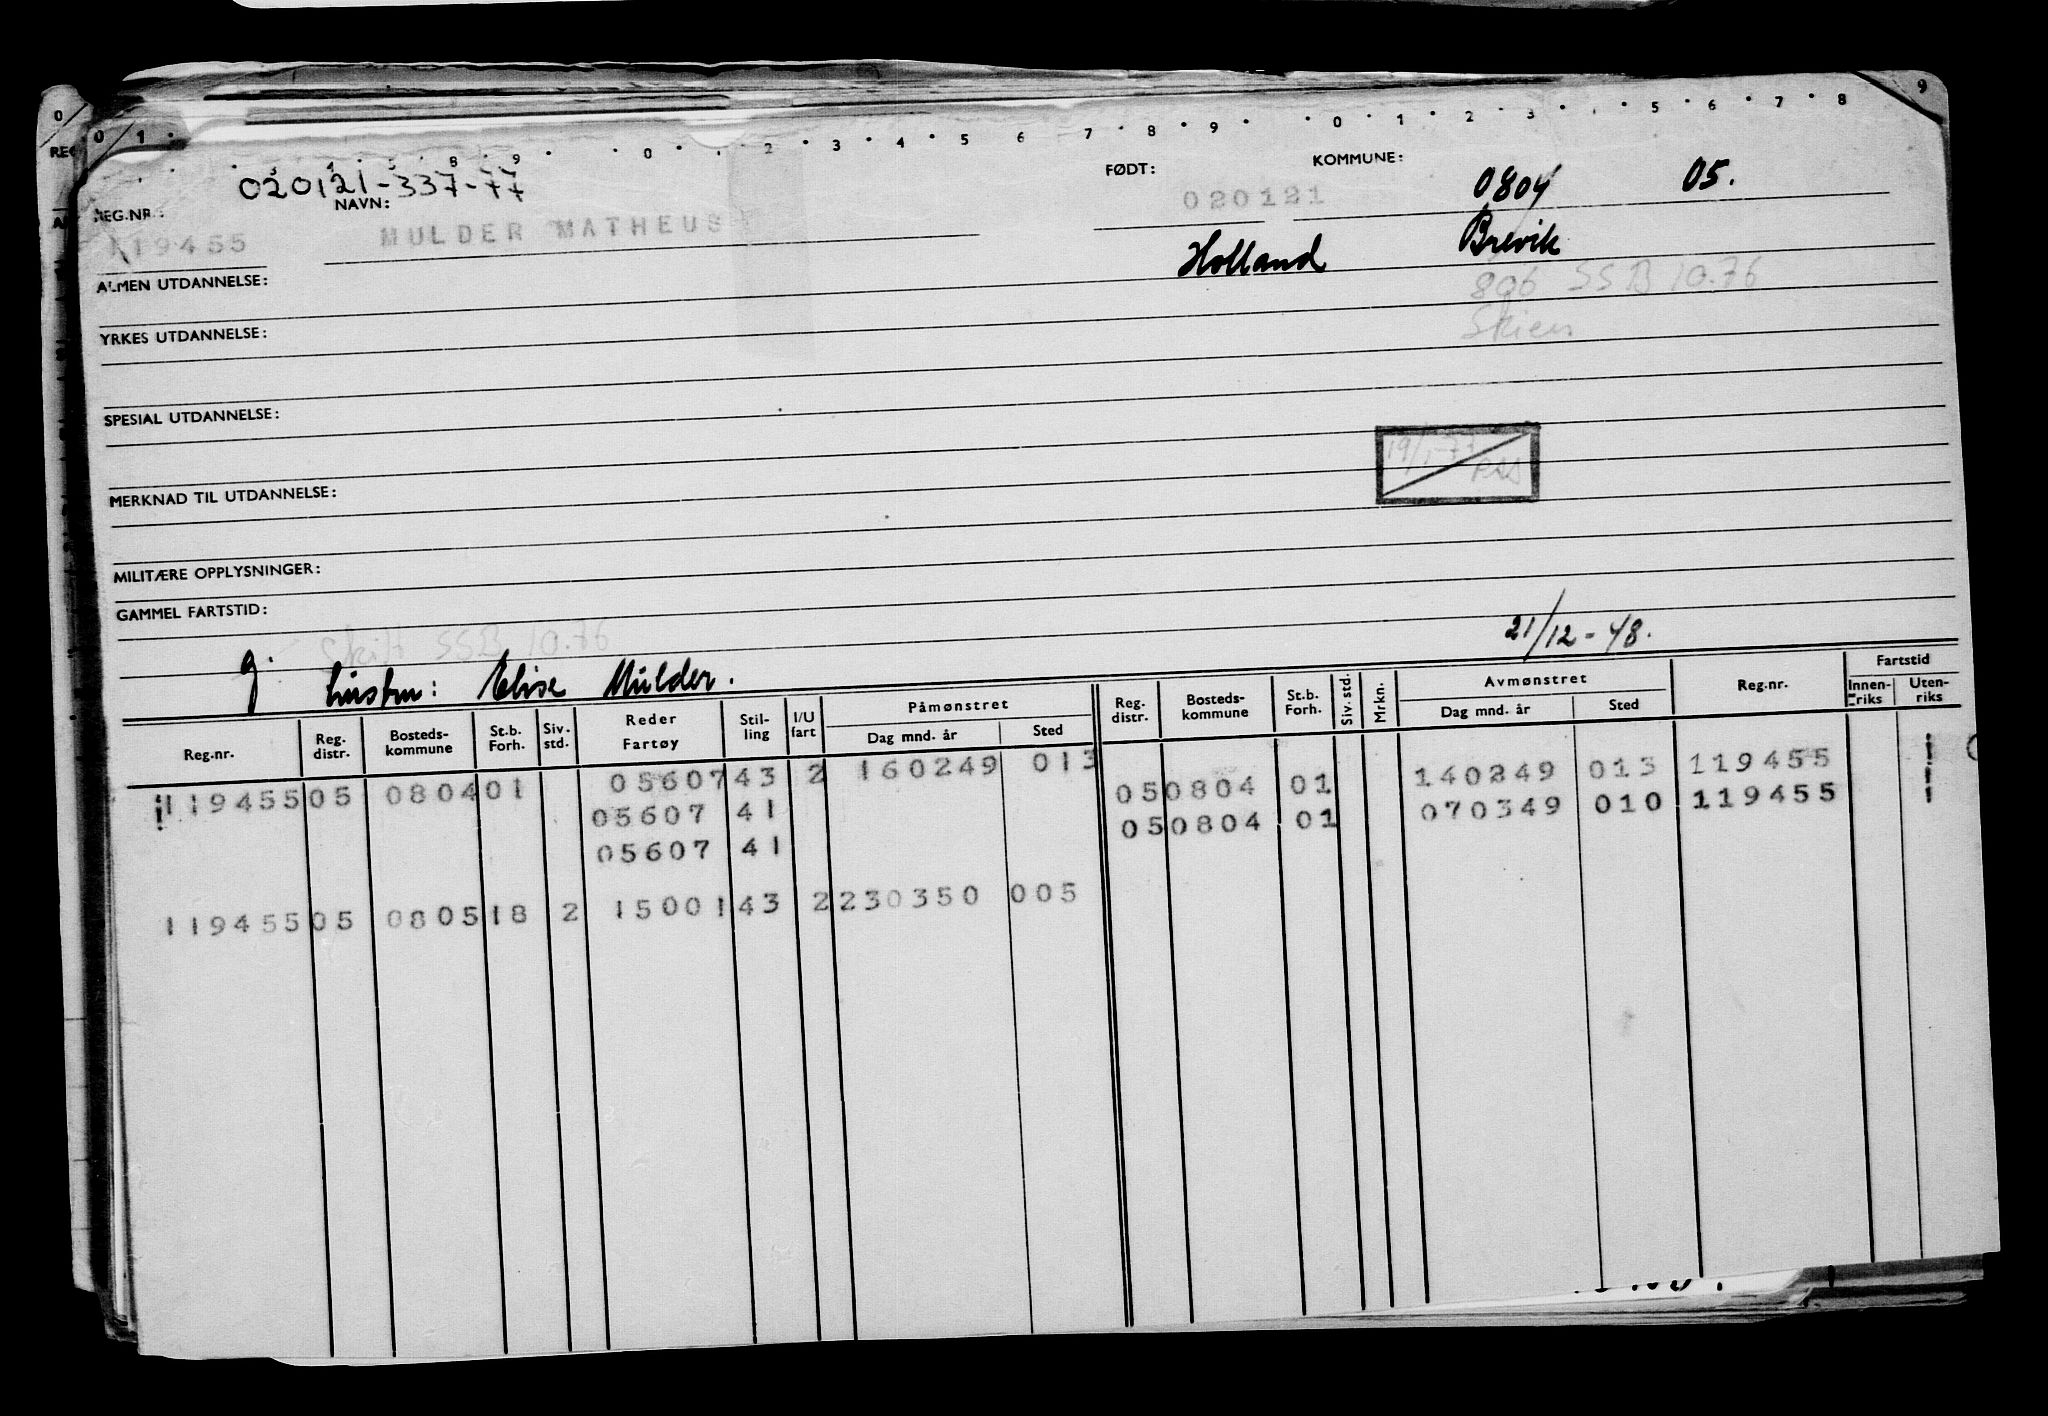 0 1 2 3 4 5 6 7 8 9 0 1 2 3 5 6 7 8 9
020121-337-77
REG.NR.: NAVN: FØDT: KOMMUNE:
119455 MULDER MATHEUS 020121 0804 05.
Holland Brevik
ALMEN UTDANNELSE: 806 SSB 10.76
Skien
YRKES UTDANNELSE:
SPESIAL UTDANNELSE:
19/1-77
MERKNAD TIL UTDANNELSE:
MILITÆRE OPPLYSNINGER:
GAMMEL FARTSTID:
Skift SSB 10.76 21/12-48.
g. hustru: Elise Mulder.
Reg.nr. Reg. distr. Bosteds-kommune St.b. Forh. Siv. std. Reder Fartøy Stil-ling I/U fart Påmønstret Dag mnd. år Sted Reg. distr. Bosteds-kommune St.b. Forh. Siv. std. Mrkn. Avmønstret Dag mnd. år Sted Reg.nr. Fartstid Innen-riks Uten-riks
119455 05 0804 01 05607 43 2 160249 013 05 0804 01 140249 013 119455 1
05607 41 05 0804 01 070349 010 119455 1
05607 41
119455 05 0805 18 2 15001 43 2 230350 005